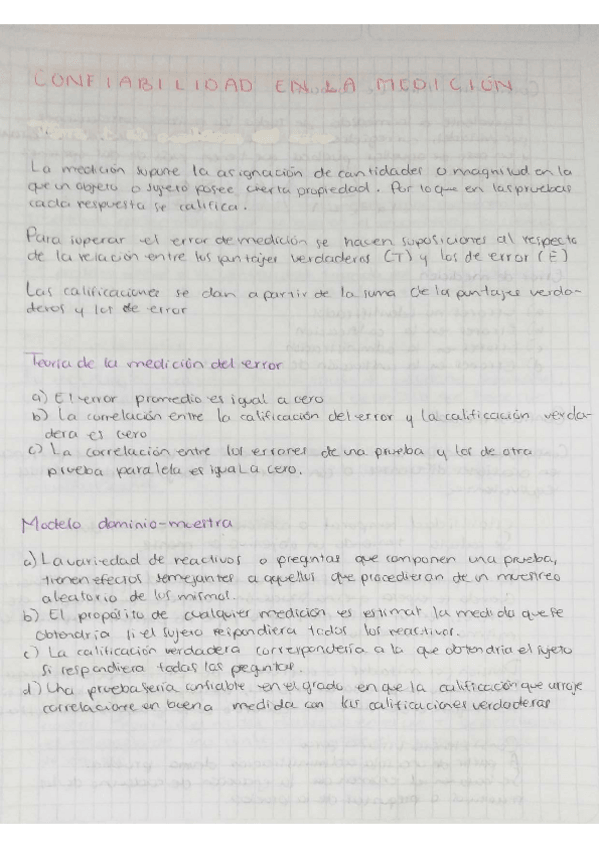 CONFIABILIDAD EN LA MEDICIÓN
La medición supone la asignación de cantidades o magnitud en la
que un objeto o sujeto posee cierta propiedad. Por lo que en las pruebas
cada respuesta se califica.
Para superar el error de medición se hacen suposiciones al respecto
de la relación entre los puntajes verdaderos (T) y los de error (E)
Las calificaciones se dan a partir de la suma de la puntajes verda-
deros y los de error
Teoría de la medición del error
a) El error promedio es igual a cero
b) La correlación entre la calificación del error y la calificación verda-
dera es cero
c) La correlación entre los errores de una prueba y los de otra
prueba paralela es igual a cero.
Modelo dominio-muestra
a) La variedad de reactivos o preguntas que componen una prueba,
tienen efectos semejantes a aquellos que procedieran de un muestreo
aleatorio de los mismos.
b) El propósito de cualquier medición es estimar la medida que se
obtendría si el sujeto respondiera todos los reactivos.
c) La calificación verdadera correspondería a la que obtendría el sujeto
si respondiera todas las preguntas.
d) Una prueba sería confiable en el grado en que la calificación que arroje
correlacione en buena medida con las calificaciones verdaderas